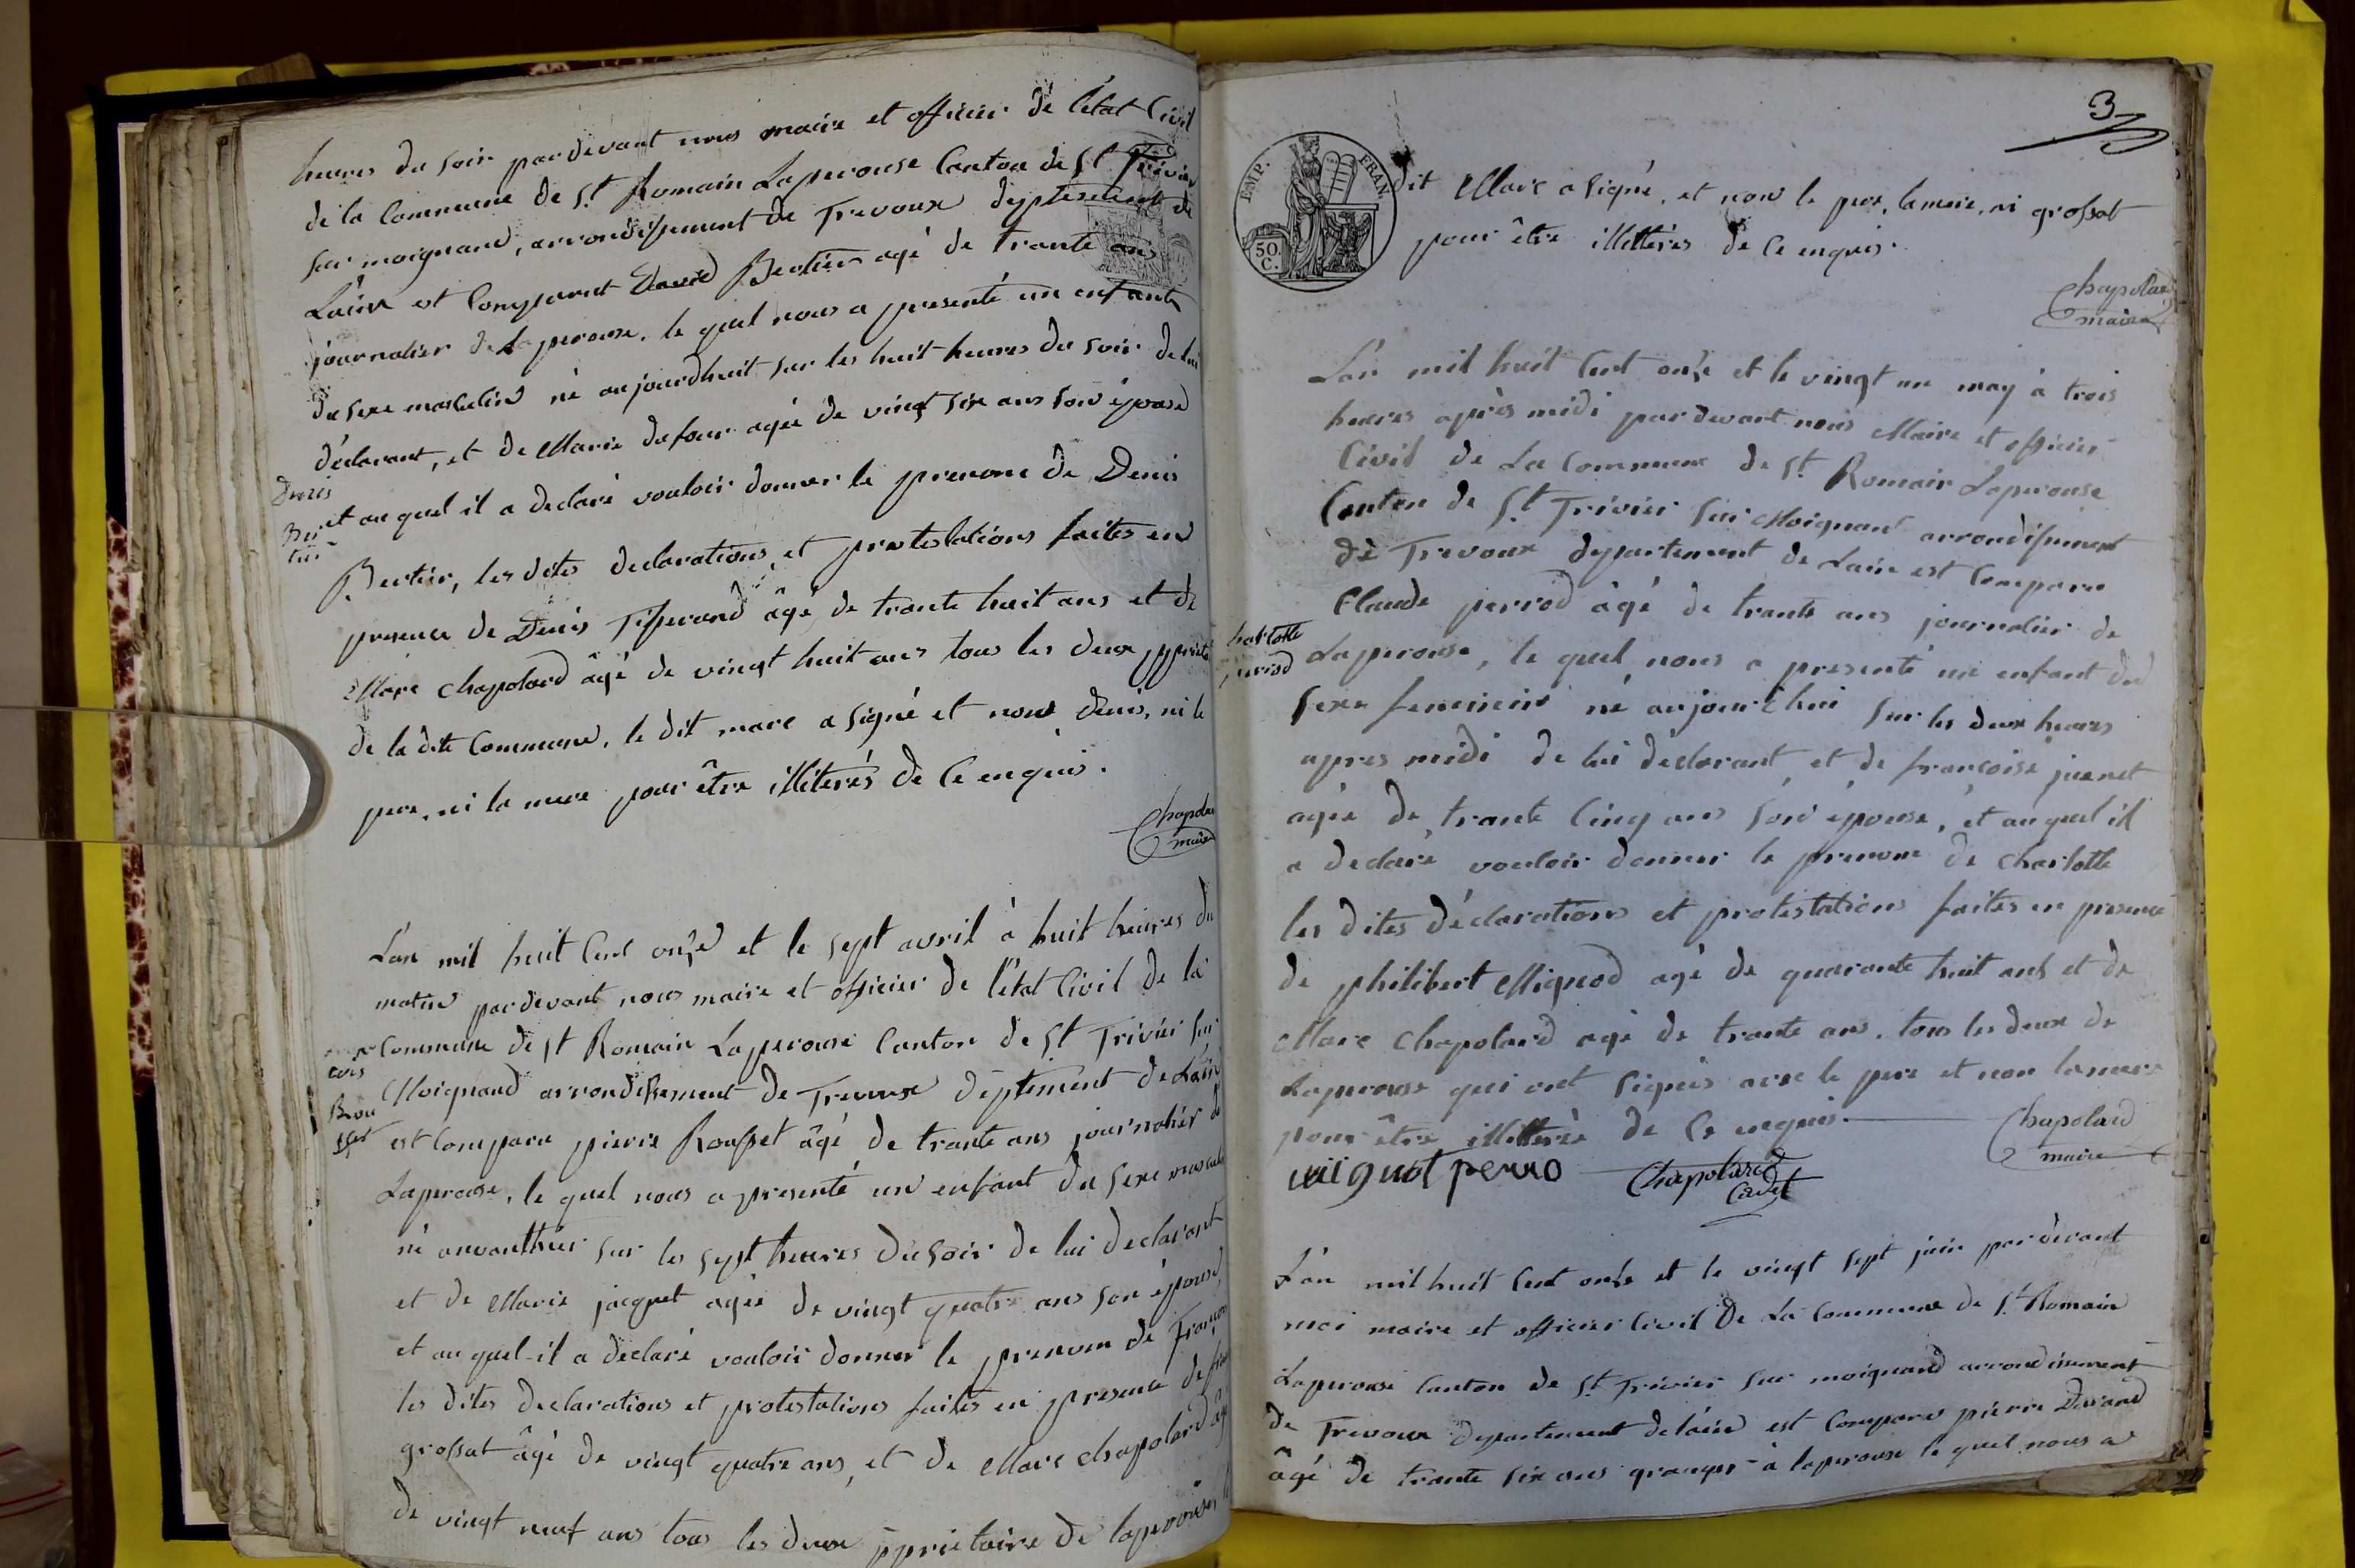 heures du soir pardevant nous maire et officier de l'état Civil
de la Commune de St. Romain Laperouse Canton de St Trivier
sur moignand, arrondissement de Trevoux deptement de
Lain est Comparut David Bertier agé de trante ans
journalier de Laperouse, le quel nous a presenté un enfant
du sexe masculin né aujourdhuit sur les huit heures du soir de lui
déclarant, et de Marie dufour agée de vingt six ans son épouse
Denis
et au quel il a declaré vouloir donner le prenom de Denis
Ber
tier
Bertier, les dites declarations et protestations faites en
presence de Denis Tisserand âgé de trante huit ans et de
Marc Chapolard âgé de vingt huit ans tous les deux
de la dite Commune, le dit marc a signé et non Denis, ni le
pere, ni la mere pour être illiterés de ce enquis.
Chapolard
maire
L'an mil huit Cent onze et le sept avril à huit heures du
matin pardevant nous maire et officier de l'état Civil de la
Commune de St Romain Laperouse Canton de St Trivier sur
cois
Moignand arrondissement de Trevoux deptement de Lain
Rou
sset
est Comparu pierre Rousset âgé de trante ans journalier de
Laperouse, le quel nous a presenté un enfant du sexe masculin
né avanthier sur les sept heures du soir de lui declarant
et de Marie jacquet agée de vingt quatre ans son épouse,
et au quel il a declaré vouloir donner le prenom de François
les dites declarations et protestations faites en presence de
grossat âgé de vingt quatre ans, et de Marc Chapolard âgé
de vingt neuf ans tous les deux ppriétaire de laperouse, le
3
EMP. FRAN.
50 C.
dit Marc a signé, et non le pere, la mere, ni grossat
pour être illettérés de ce enquis.
Chapolard
maire
L'an mil huit Cent onze et le vingt un may à trois
heures après midi par devant nous Maire et officier
Civil de La commune de St. Romain Laperouse
Canton de St. Trivier sur Moignant arrondissement
de Trevoux departement de Lain est Comparu
Claude perrod âgé de trante ans journalier de
harlotte
perrod
Laperouse, le quel nous a presenté un enfant du
sexe femeinin né aujourd'hui sur les deux heures
apres midi de lui déclarant et de françoise juenet
agée de trante Cinq ans son épouse, et au quel il
a declaré vouloir donner le prenom de Charlotte
les dites déclarations et protestations faites en presence
de philibert Mignod agé de quarante huit ans et de
Marc Chapolard agé de trante ans. tous les deux de
Laperouse qui ont signés avec le pere et non la mere
pour être illetterée de ce enquis.
Chapolard
maire
mignot perro Chapolard
Cadet
L'an mil huit Cent onze et le vingt sept juin pardevant
moi maire et officier Civil De La Commune de St. Romain
Laperouse Canton de St. Trivier sur moignand arrondissement
de Trevoux departement de lain est Comparu pierre Durand
âgé de trante six ans granger à laperouse le quel nous a